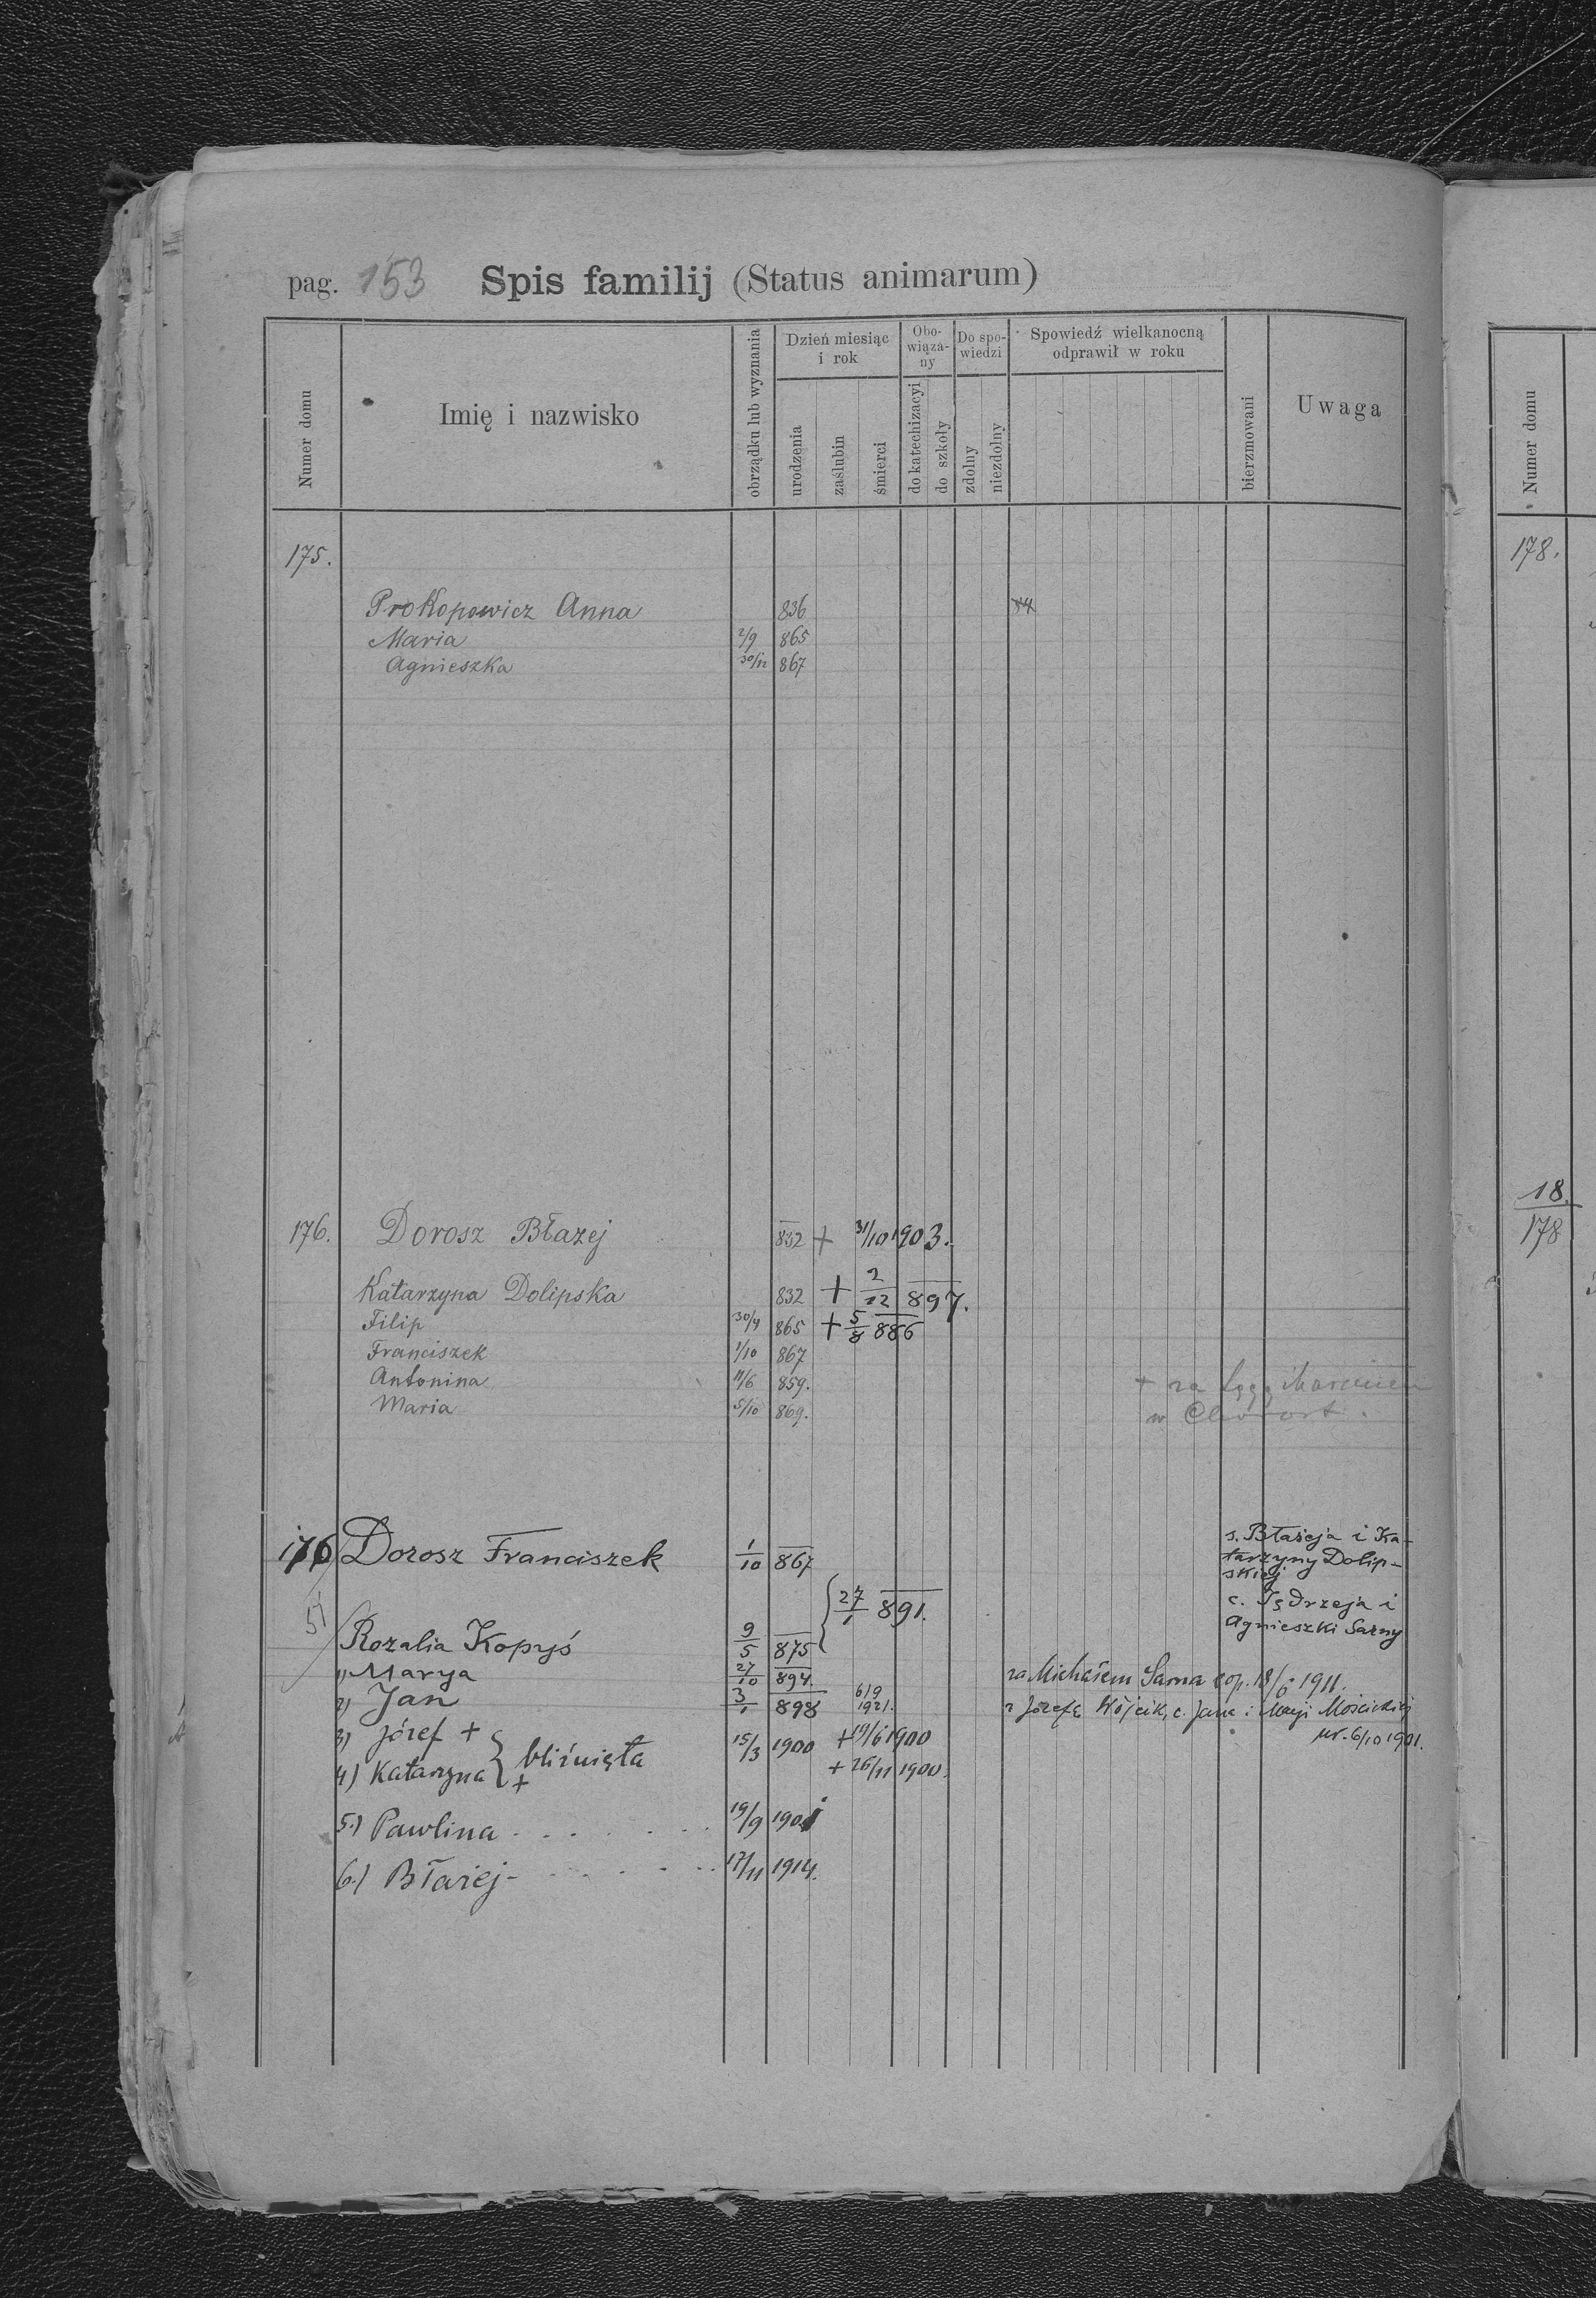 pag. 153 Spis familij (Status animarum)
Numer domu
Imię i nazwisko
obrządku lub wyznania
Dzień miesiąc i rok
urodzenia
zaślubin
śmierci
Obo-
wiąza-
ny
do katechizacyi
do szkoły
Do spo-
wiedzi
zdolny
niezdolny
Spowiedź wielkanocną
odprawił w roku
bierzmowani
Uwaga
Numer domu
175.
178.
Prokopowicz Anna 836
Maria 2/9 865
Agnieszka 30/11 867
18.
178
176. Dorosz Błazej 832 + 31/10 1903.
Katarzyna Dolipska 832 + 2/12 897.
Filip 30/4 865 + 5/8 886
Franciszek 1/10 867
Antonina 11/6 859. + za
Maria 5/10 869. w
176 Dorosz Franciszek 1/10 867
s. Błażeja i Ka-
tarzyny Dolip-
skiej
27/1 891.
c. Jędrzeja i
Agnieszki Sarny
51
Rozalia Kopyś 9/5 875
1) Marya 27/10 894 za Michałem Sarna cop. 18/6 1911.
2) Jan 3/1 898 6/9 1921. z Józefą Wójcik, c. Jana i Maryi Mościckiej
ur. 6/10 1901.
3) Józef + 15/3 1900 + 19/6 1900
bliźnięta
4) Katarzyna + + 26/11 1900.
5.) Pawlina 19/9 1901
6.) Błażej 17/11 1914.